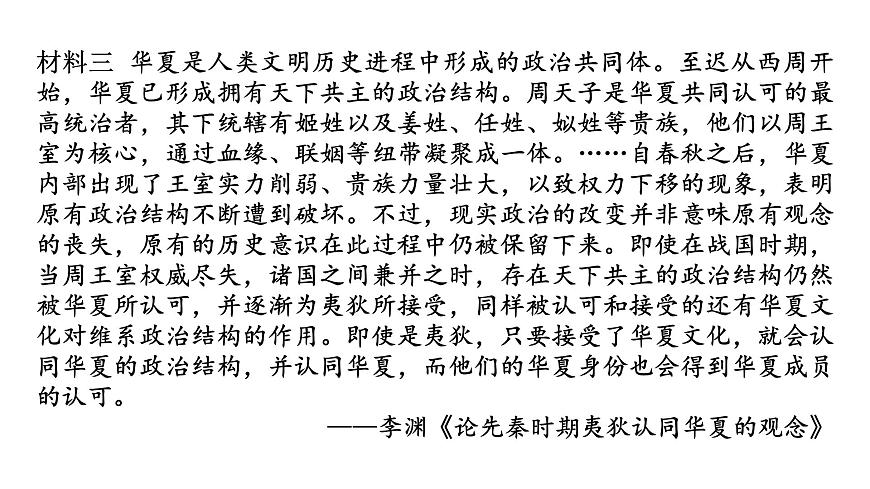 材料三 华夏是人类文明历史进程中形成的政治共同体。至迟从西周开
始，华夏已形成拥有天下共主的政治结构。周天子是华夏共同认可的最
高统治者，其下统辖有姬姓以及姜姓、任姓、姒姓等贵族，他们以周王
室为核心，通过血缘、联姻等纽带凝聚成一体。……自春秋之后，华夏
内部出现了王室实力削弱、贵族力量壮大，以致权力下移的现象，表明
原有政治结构不断遭到破坏。不过，现实政治的改变并非意味原有观念
的丧失，原有的历史意识在此过程中仍被保留下来。即使在战国时期，
当周王室权威尽失，诸国之间兼并之时，存在天下共主的政治结构仍然
被华夏所认可，并逐渐为夷狄所接受，同样被认可和接受的还有华夏文
化对维系政治结构的作用。即使是夷狄，只要接受了华夏文化，就会认
同华夏的政治结构，并认同华夏，而他们的华夏身份也会得到华夏成员
的认可。
——李渊《论先秦时期夷狄认同华夏的观念》